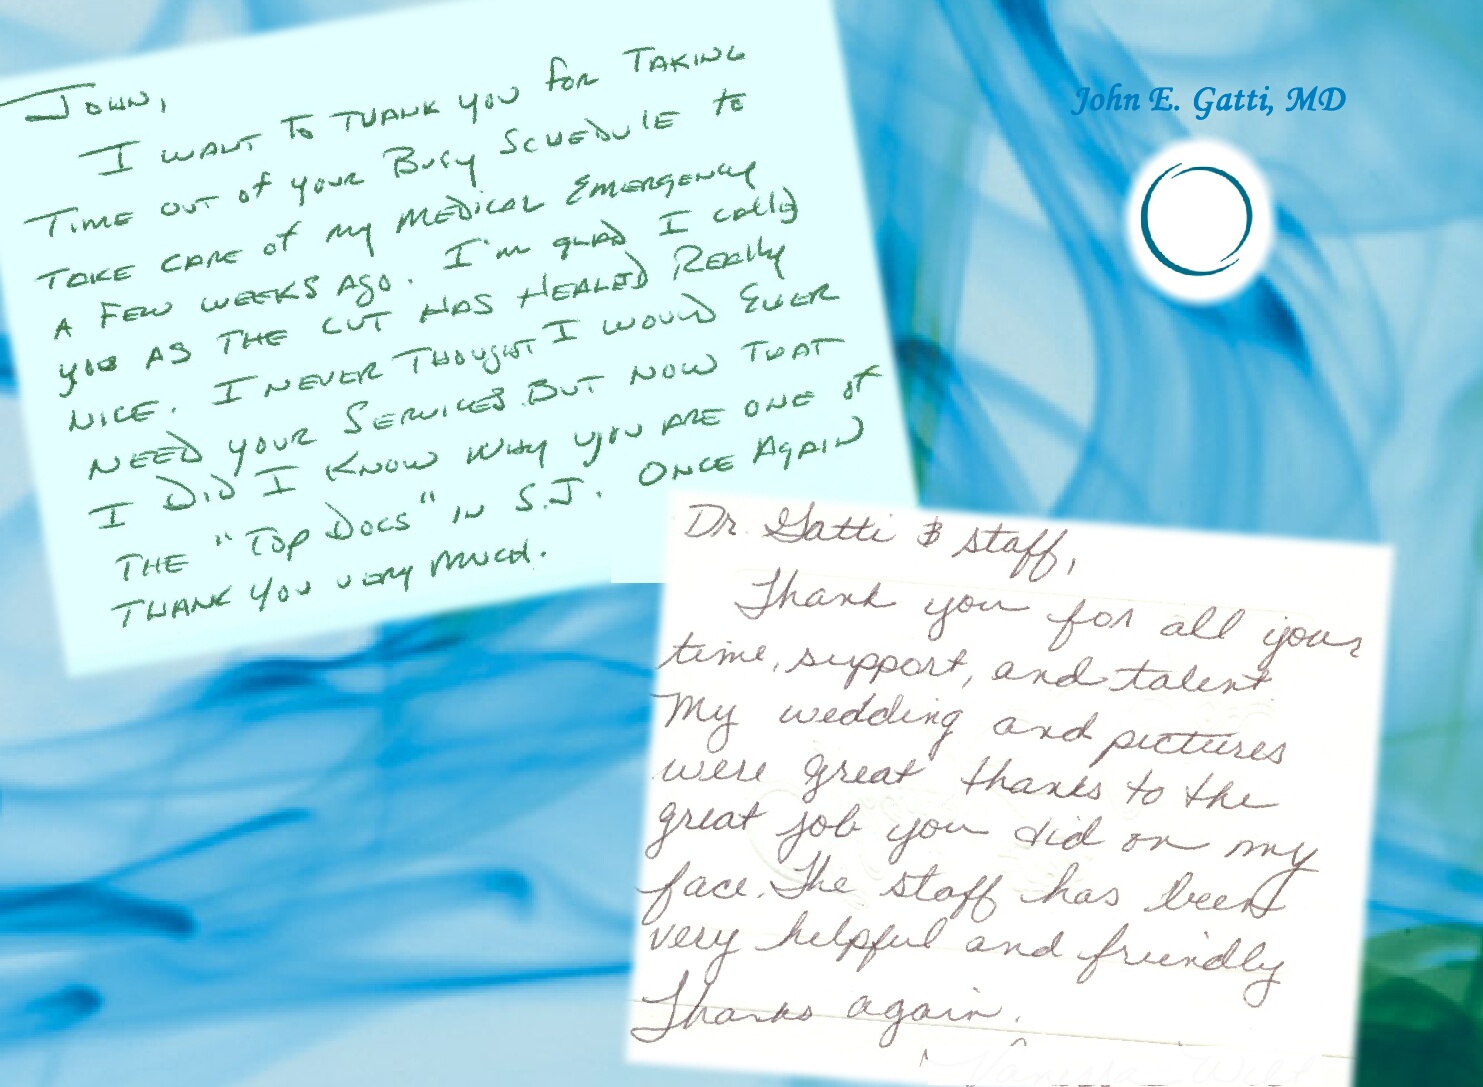 John,
I WANT TO THANK YOU for TAKING
TIME OUT of YOUR BUSY SCHEDULE to
TAKE CARE of my MEDICAL EMERGENCY
A FEW WEEKS AGO. I'm glad I called
you AS THE CUT HAS HEALED REALLY
NICE. I NEVER THOUGHT I WOULD EVER
NEED YOUR SERVICES BUT NOW THAT
I DID I KNOW WHY YOU ARE ONE of
THE "TOP DOCS" IN S.J. ONCE AGAIN
THANK YOU VERY MUCH.
John E. Gatti, MD
Dr. Gatti & staff,
Thank you for all your
time, support, and talent.
My wedding and pictures
were great thanks to the
great job you did on my
face. The staff has been
very helpful and friendly
Thanks again.
Vanessa